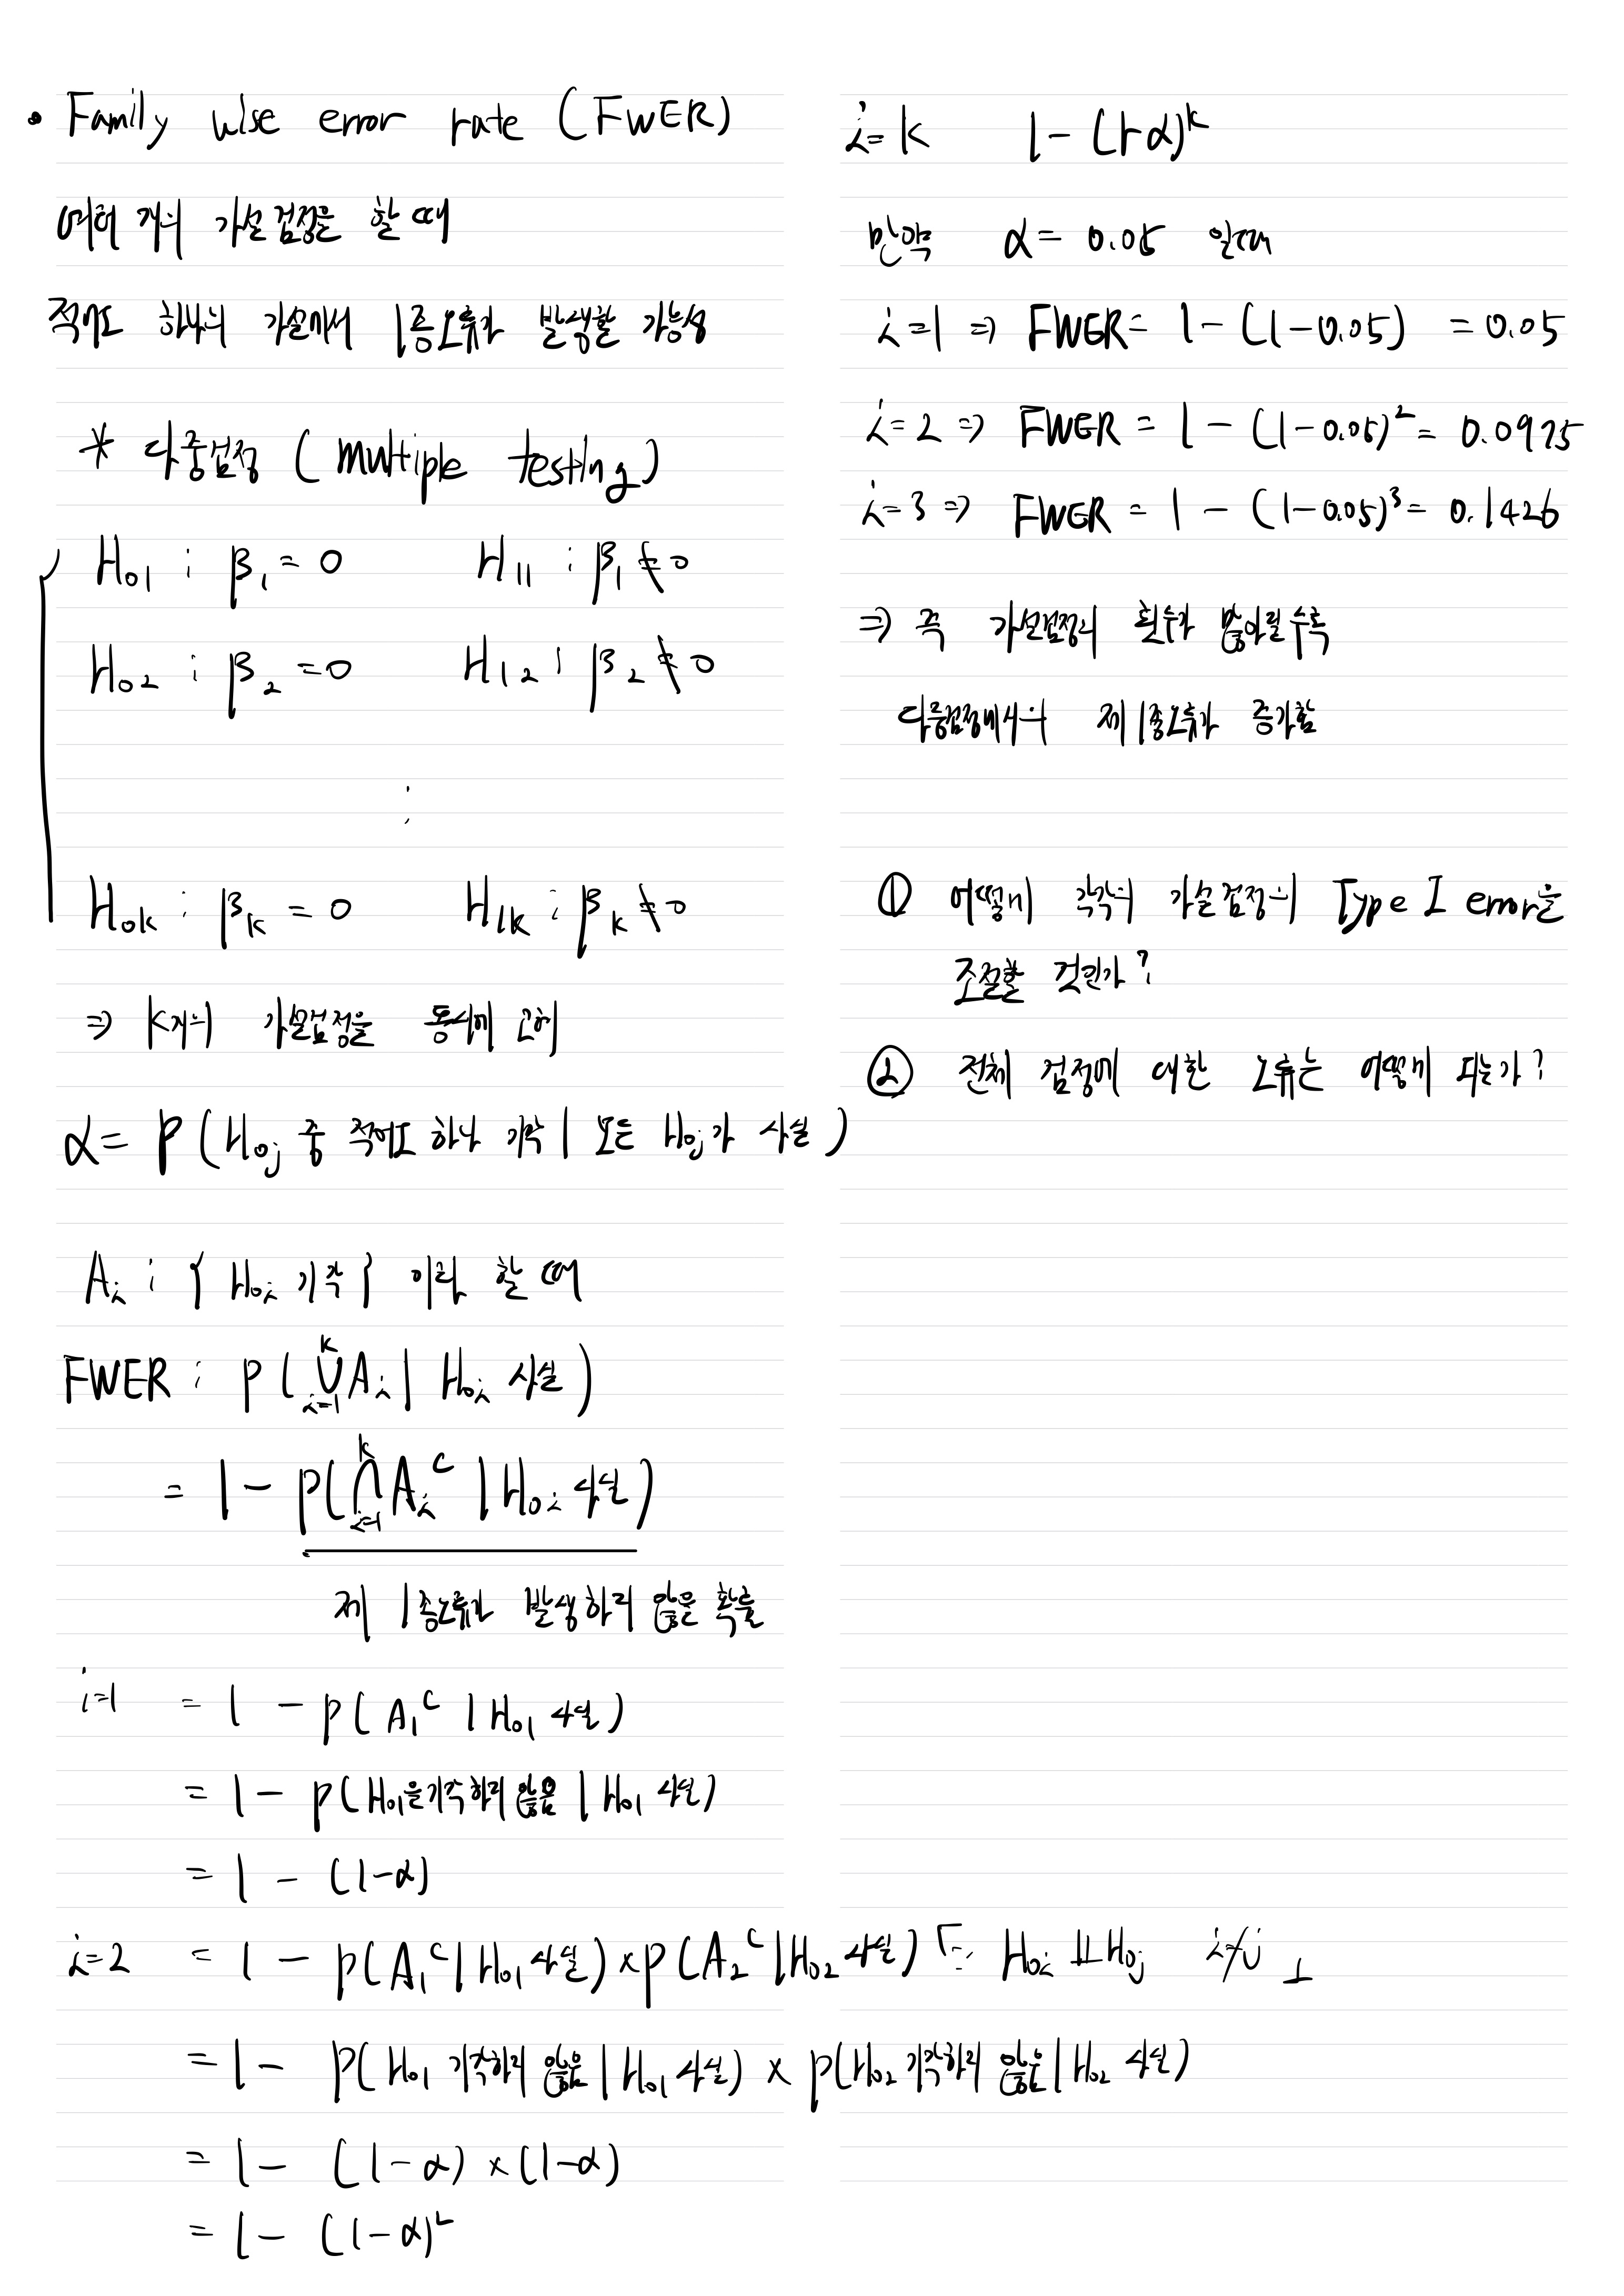 • Family wise error rate (FWER)
여러 개의 가설검정을 할 때
적어도 하나의 가설에서 1종오류가 발생할 가능성
* 다중검정 (multiple testing)
H₀₁ : β₁ = 0 H₁₁ : β₁ ≠ 0
H₀₂ : β₂ = 0 H₁₂ : β₂ ≠ 0
⋮
H₀ₖ : βₖ = 0 H₁ₖ : βₖ ≠ 0
⇒ K개의 가설검정을 동시에 고려
α = P(H₀ⱼ 중 적어도 하나 기각 | 모든 H₀ⱼ가 사실)
Aᵢ : {H₀ᵢ 기각} 이라 할 때
FWER : P(⋃ᵢ₌₁ᵏ Aᵢ | H₀ᵢ 사실)
= 1 - P(⋂ᵢ₌₁ᵏ Aᵢᶜ | H₀ᵢ 사실)
제 1종오류가 발생하지 않을 확률
i=1 = 1 - P(A₁ᶜ | H₀₁ 사실)
= 1 - P(H₀₁을 기각하지 않음 | H₀₁ 사실)
= 1 - (1-α)
i=2 = 1 - P(A₁ᶜ | H₀₁ 사실) × P(A₂ᶜ | H₀₂ 사실) ⌈∵ H₀ᵢ ⊥⊥ H₀ⱼ i≠j ⊥
= 1 - P(H₀₁ 기각하지 않음 | H₀₁ 사실) × P(H₀₂ 기각하지 않음 | H₀₂ 사실)
= 1 - (1-α) × (1-α)
= 1 - (1-α)²
i=k 1 - (1-α)ᵏ
만약 α = 0.05 일때
i=1 ⇒ FWER = 1 - (1-0.05) = 0.05
i=2 ⇒ FWER = 1 - (1-0.05)² = 0.0975
i=3 ⇒ FWER = 1 - (1-0.05)³ = 0.1426
⇒ 즉 가설검정의 횟수가 많아질수록
다중검정에서의 제 1종오류가 증가함
① 어떻게 각각의 가설검정의 Type I error을
조절할 것인가?
② 전체 검정에 대한 오류는 어떻게 되는가?